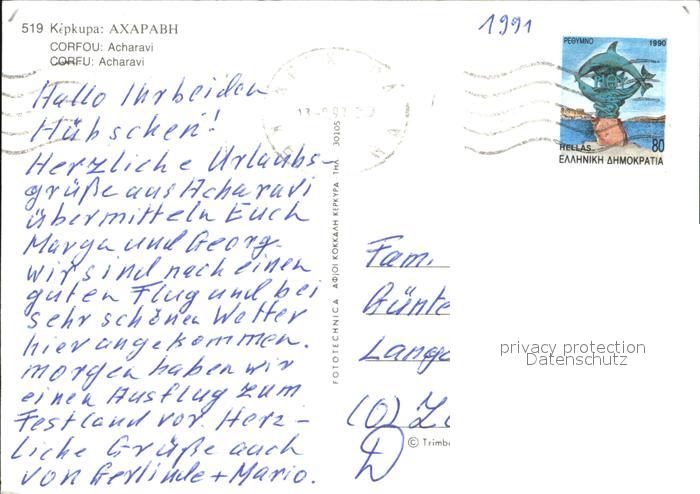 519 Κέρκυρα: ΑΧΑΡΑΒΗ
CORFOU: Acharavi
CORFU: Acharavi
1991
ΡΕΘΥΜΝΟ 1990
HELLAS 80
ΕΛΛΗΝΙΚΗ ΔΗΜΟΚΡΑΤΙΑ
Hallo Ihr beiden
Hübschen!
Herzliche Urlaubs-
grüße aus Acharavi
übermitteln Euch
Marga und Georg.
Wir sind nach einen
guten Flug und bei
sehr schönen Wetter
hier angekommen.
Morgen haben wir
einen Ausflug zum
Festland vor. Herz-
liche Grüße auch
von Gerlinde + Mario.
FOTOTECHNICA ΑΦΙΟΙ ΚΟΚΚΑΛΗ ΚΕΡΚΥΡΑ ΤΗΛ. 30205
Fam.
Günte
Lange
(O) Z
D
privacy protection
Datenschutz
© Trimb